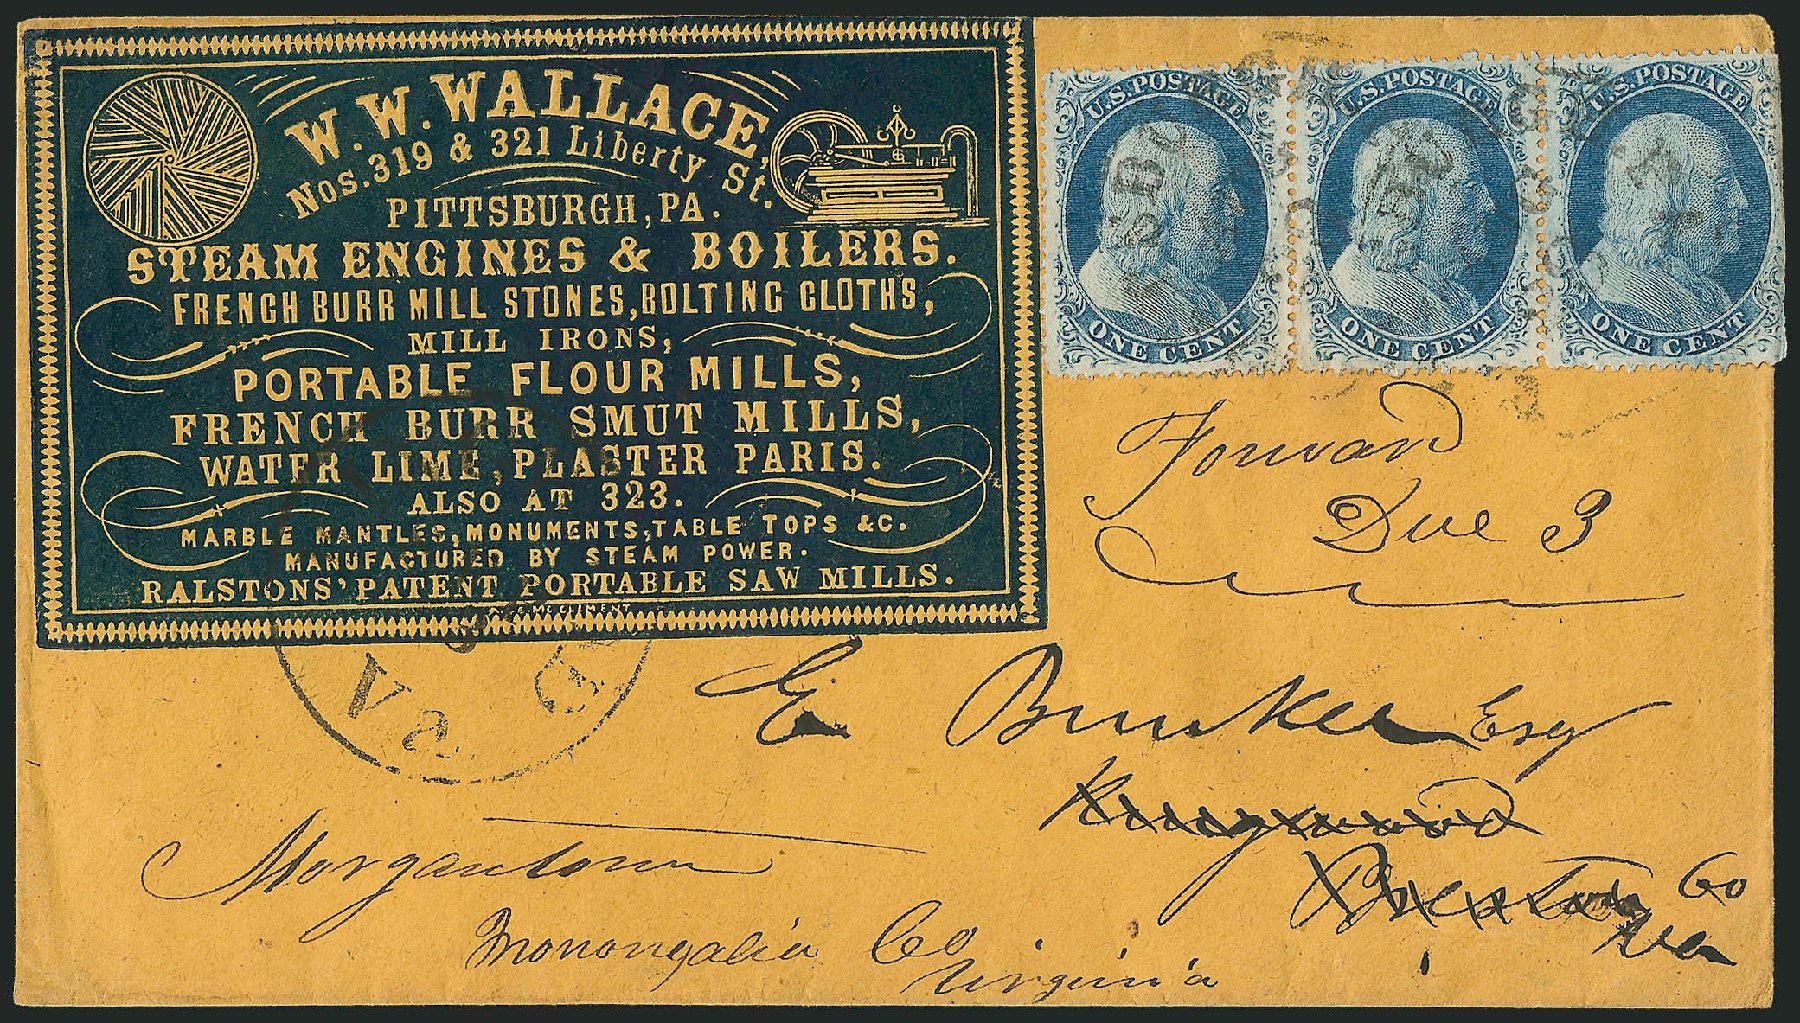 W. W. WALLACE,
Nos. 319 & 321 Liberty St.
PITTSBURGH, PA.
STEAM ENGINES & BOILERS.
FRENCH BURR MILL STONES, BOLTING CLOTHS,
MILL IRONS,
PORTABLE FLOUR MILLS,
FRENCH BURR SMUT MILLS,
WATER LIME, PLASTER PARIS.
ALSO AT 323.
MARBLE MANTLES, MONUMENTS, TABLE TOPS &C.
MANUFACTURED BY STEAM POWER.
RALSTONS' PATENT PORTABLE SAW MILLS.
U.S. POSTAGE
ONE CENT
U.S. POSTAGE
ONE CENT
U.S. POSTAGE
ONE CENT
Forward
Due 3
Va
E Bunker Esq
Kingwood
Preston Co
Va
Morgantown
Monongalia Co
Virginia